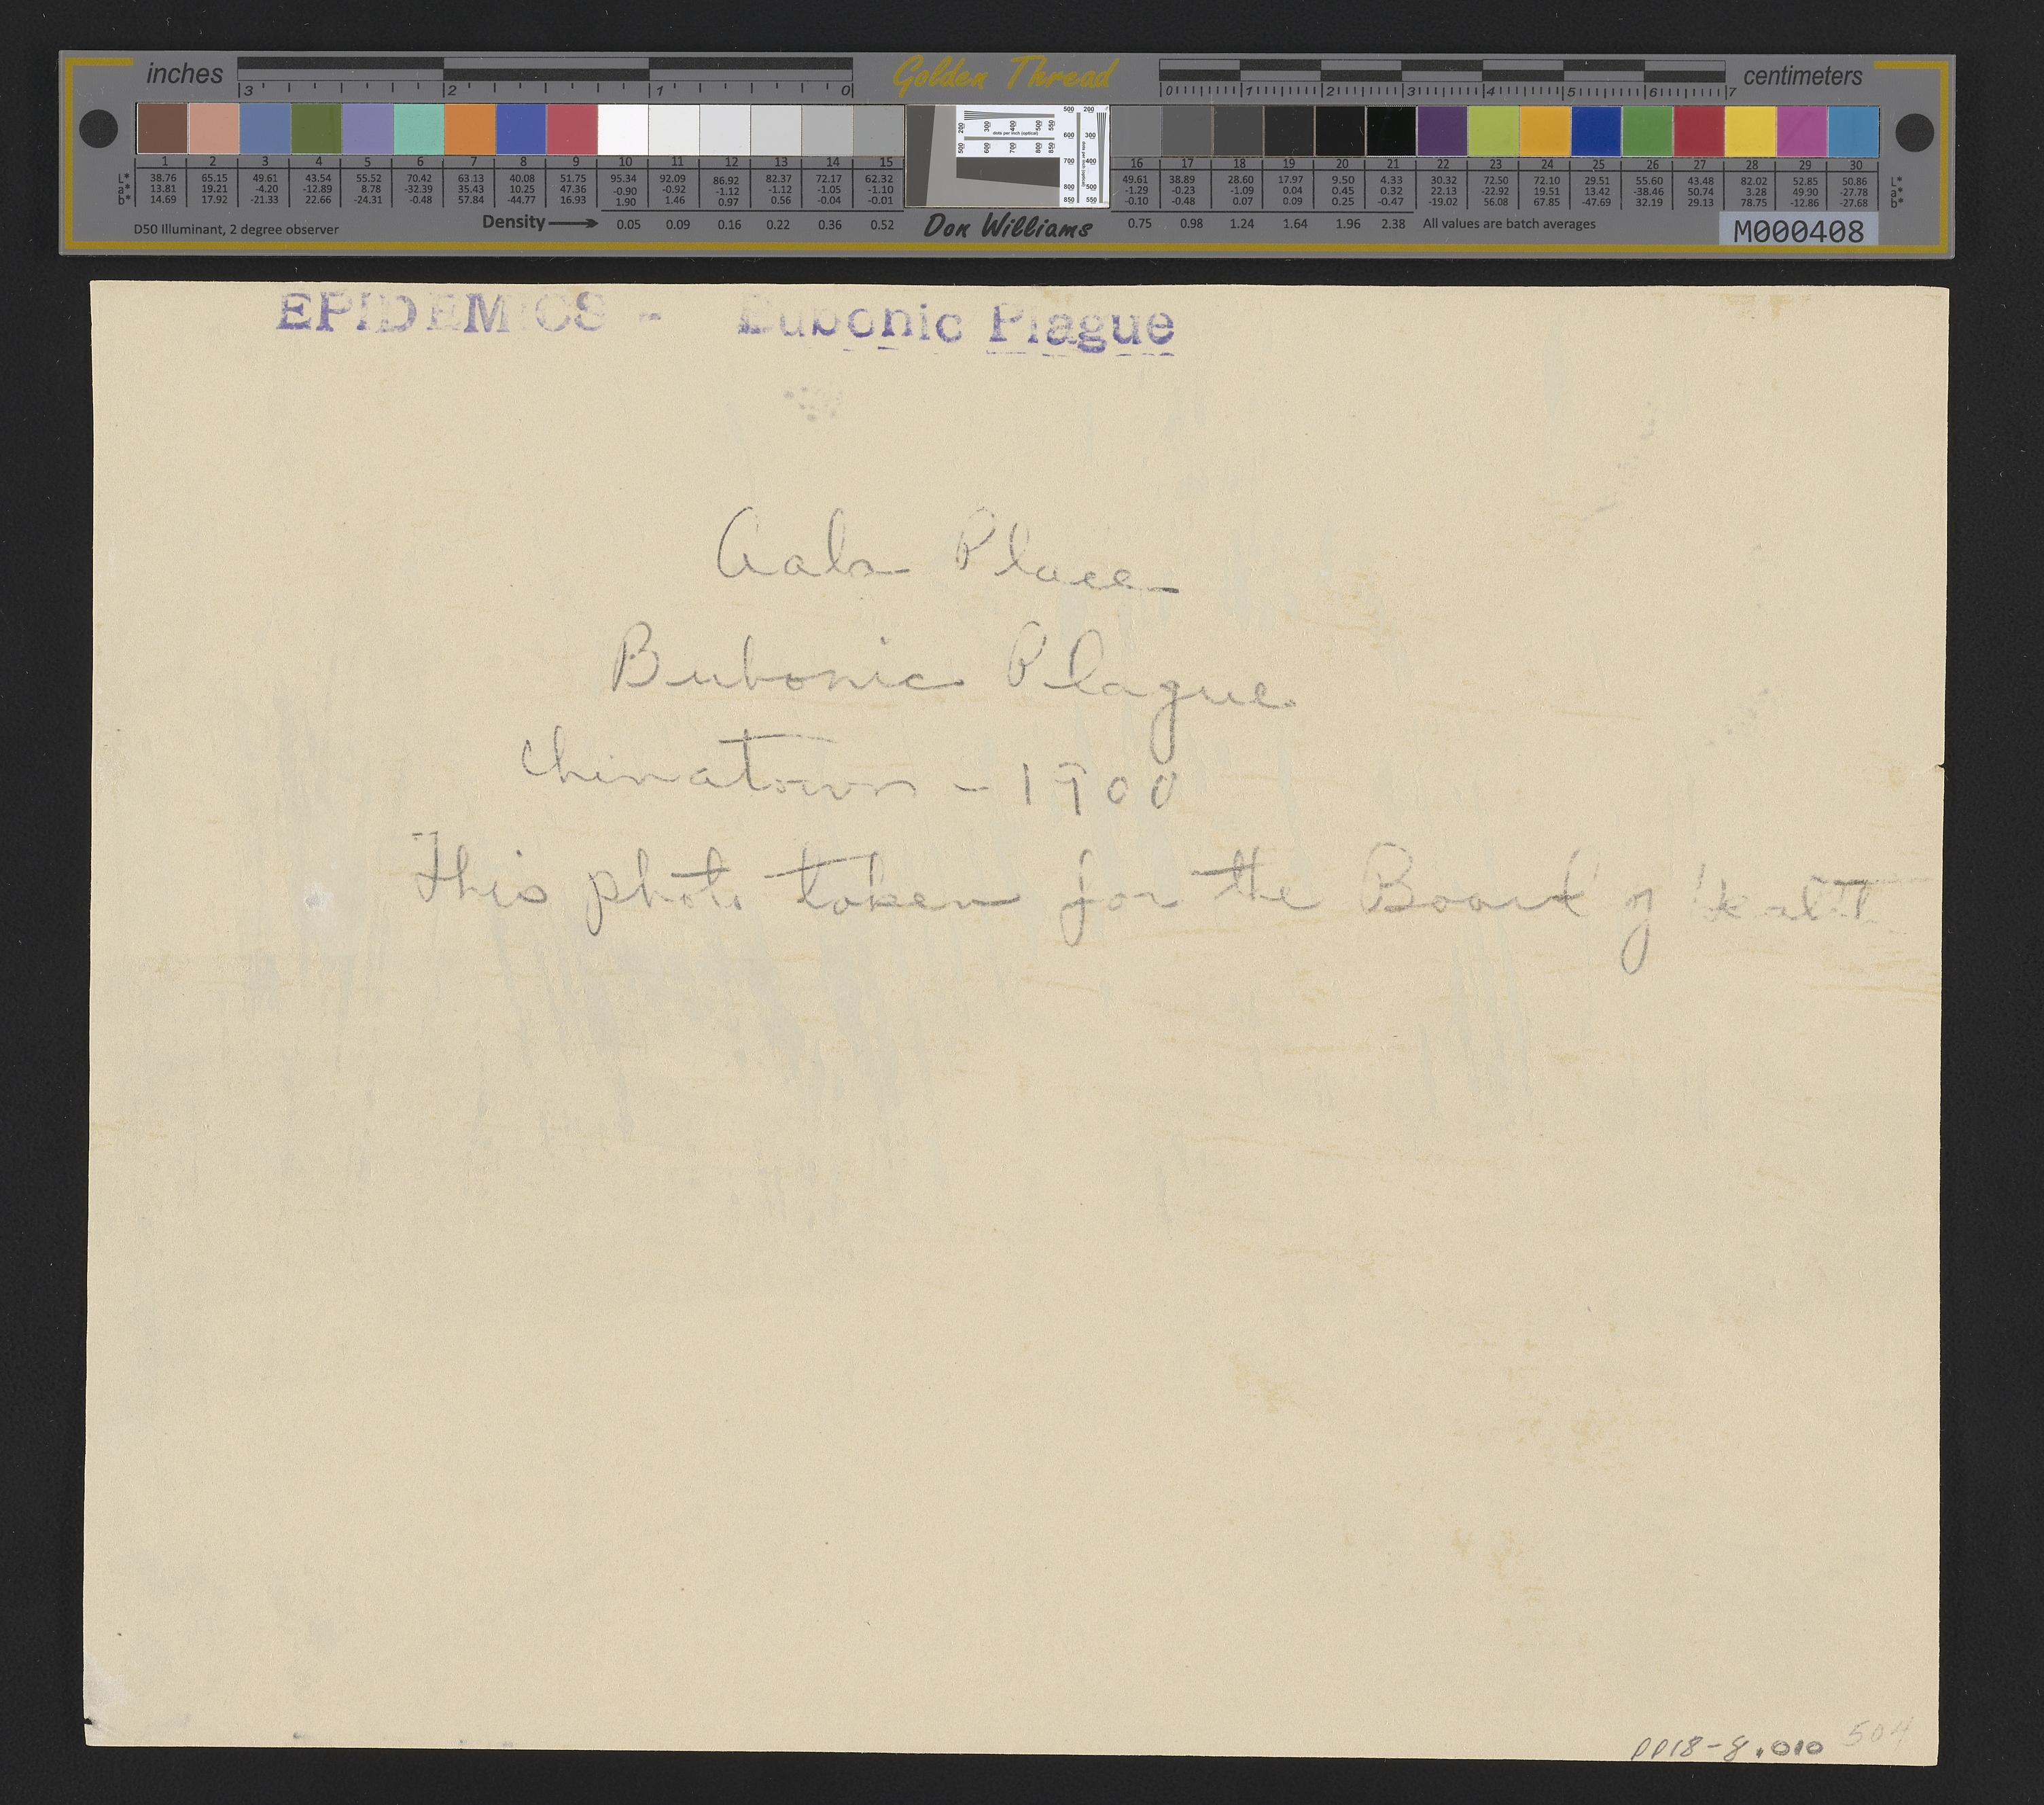 inches 3 2 1 0 Golden Thread 0 1 2 3 4 5 6 7 centimeters
1 2 3 4 5 6 7 8 9 10 11 12 13 14 15 16 17 18 19 20 21 22 23 24 25 26 27 28 29 30
L* 38.76 65.15 49.61 43.54 55.52 70.42 63.13 40.08 51.75 95.34 92.09 86.92 82.37 72.17 62.32 49.61 38.89 28.60 17.97 9.50 4.33 30.32 72.50 72.10 29.51 55.60 43.48 82.02 52.85 50.86 L*
a* 13.81 19.21 -4.20 -12.89 8.78 -32.39 35.43 10.25 47.36 -0.90 -0.92 -1.12 -1.12 -1.05 -1.10 -1.29 -0.23 -1.09 0.04 0.45 0.32 22.13 -22.92 19.51 13.42 -38.46 50.74 3.28 49.90 -27.78 a*
b* 14.69 17.92 -21.33 22.66 -24.31 -0.48 57.84 -44.77 16.93 1.90 1.46 0.97 0.56 -0.04 -0.01 -0.10 -0.48 0.07 0.09 0.25 -0.47 -19.02 56.08 67.85 -47.69 32.19 29.13 78.75 -12.86 -27.68 b*
D50 Illuminant, 2 degree observer Density 0.05 0.09 0.16 0.22 0.36 0.52 Don Williams 0.75 0.98 1.24 1.64 1.96 2.38 All values are batch averages M000408
EPIDEMICS - Bubonic Plague
Aala Place
Bubonic Plague
Chinatown - 1900
This photo taken for the Board of Health
PP18-8.010 504